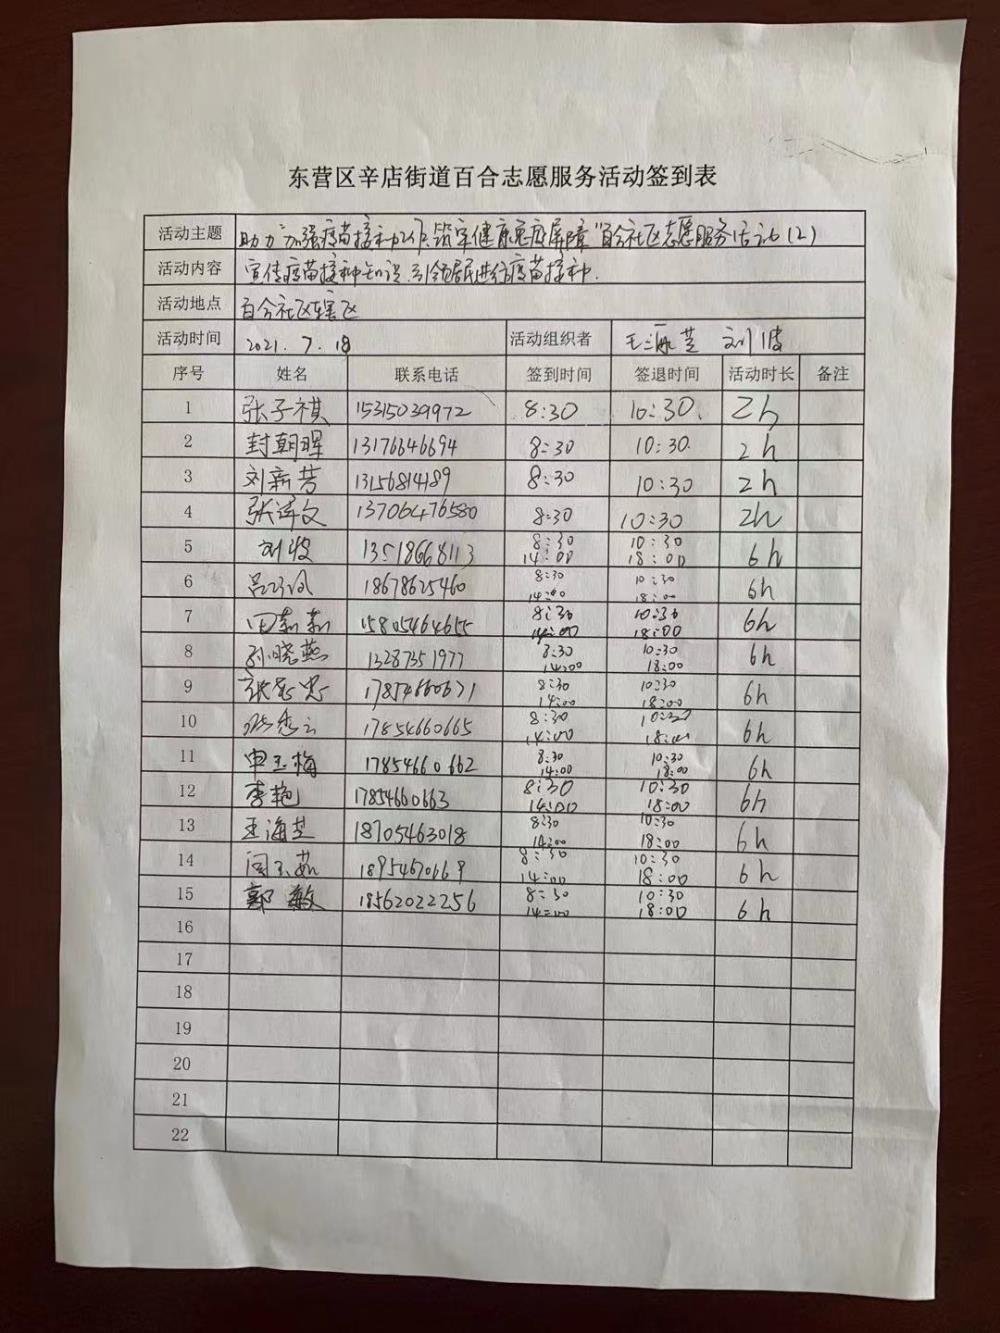 东营区辛店街道百合志愿服务活动签到表
活动主题 助力加强疫苗接种工作 筑牢健康免疫屏障"百合社区志愿服务活动(2)
活动内容 宣传疫苗接种知识,引领居民进行疫苗接种.
活动地点 百合社区辖区
活动时间 2021.7.18 活动组织者 王海芝 刘波
序号 姓名 联系电话 签到时间 签退时间 活动时长 备注
1 张子祺 15315039972 8:30 10:30. 2h
2 封朝晖 13176346694 8:30 10:30. 2h
3 刘新芳 13156814189 8:30 10:30 2h
4 张译文 13706476580 8:30 10:30 2h
5 刘波 13518668113 8:30 14:00 10:30 18:00 6h
6 18678625460 8:30 14:00 10:30 18:00 6h
7 田莉莉 15805464655 8:30 14:00 10:30 18:00 6h
8 孙晓燕 13287351977 8:30 14:00 10:30 18:00 6h
9 17854660671 8:30 14:00 10:30 18:00 6h
10 17854660665 8:30 14:00 10:30 18:00 6h
11 申玉梅 17854660662 8:30 14:00 10:30 18:00 6h
12 李艳 17854660663 8:30 14:00 10:30 18:00 6h
13 王海芝 18705463018 8:30 14:00 10:30 18:00 6h
14 18954670669 8:30 14:00 10:30 18:00 6h
15 郭敏 18562022256 8:30 14:00 10:30 18:00 6h
16
17
18
19
20
21
22